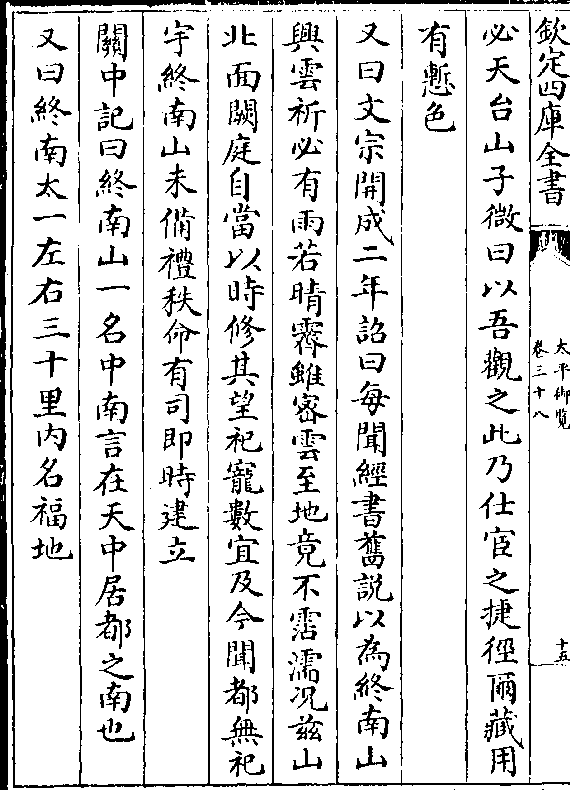 欽定四庫全書
太平御覽
卷三十八
十五
必天台山子微曰以吾觀之此乃仕宦之捷徑爾藏用
有慙色
又曰文宗開成二年詔曰每聞經書舊說以為終南山
興雲祈必有雨若晴霽雖密雲至地竟不霑濡况茲山
北面闕庭自當以時修其望祀寵數宜及今聞都無祀
宇終南山未備禮秩命有司即時建立
關中記曰終南山一名中南言在天中居都之南也
又曰終南太一左右三十里内名福地